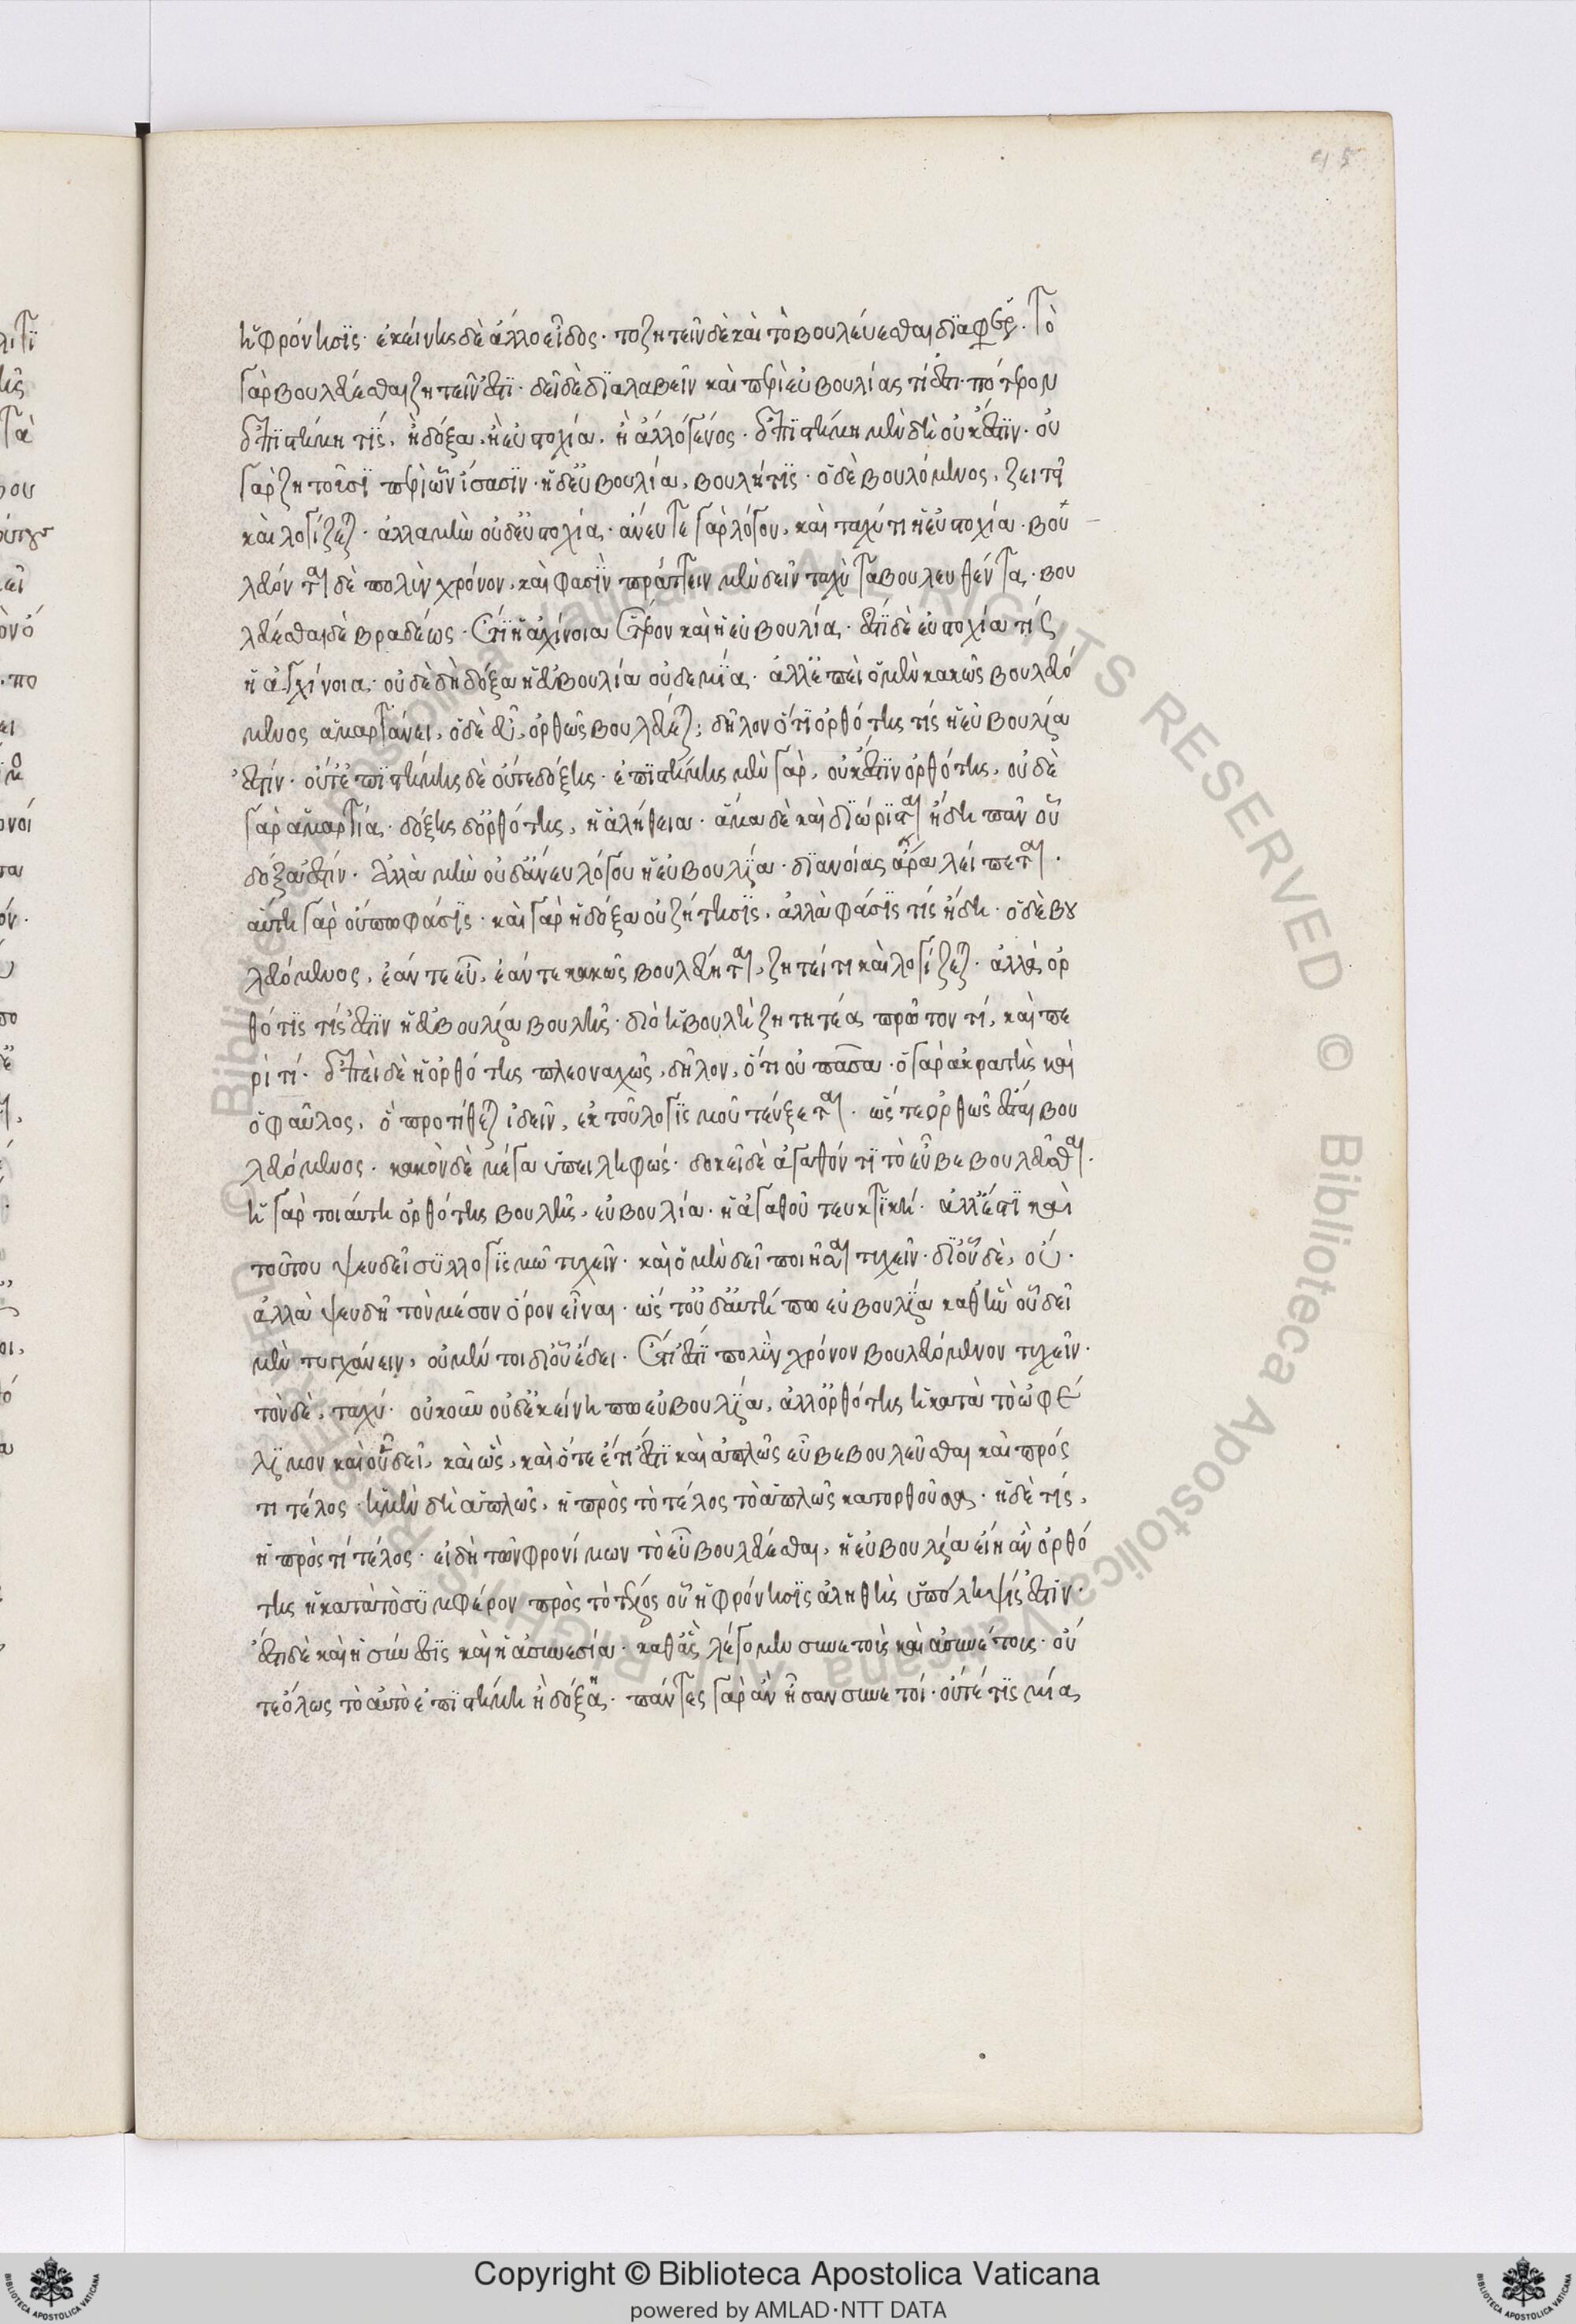 45
ἡ φρόνησϊς· ἐκείνης δὲ ἄλλο εἶδος· το ζητεῖν δὲ καὶ τὸ βουλεύεσθαι δϊαφέρ· Τὸ
γὰρ βουλεύεσθαι ζητεῖν ἐστϊ· δεῖ δὲ δϊαλαβεῖν καὶ περὶ εὐβουλίας τί ἐστι· πότερον
ἐπϊστήμη τϊς, ἢ δόξα, ἢ εὐστοχία, ἢ ἄλλό γένος· ἐπϊστήμη μὲν δὴ οὐκ ἔστϊν· οὐ
γὰρ ζητοῦσϊ περὶ ὧν ἴσασϊν· ἡ δ' εὐβουλία, βουλή τϊς· ὁ δὲ βουλόμενος, ζειτεῖ
καὶ λογίζεται· ἀλλαμὴν οὐδ' εὐστοχία· ἄνευ τε γὰρ λόγου, καὶ ταχύ τι ἡ εὐστοχία· βου
λεύονται δὲ πολὺν χρόνον, καὶ φασὶν πράττειν μὲν δεῖν ταχὺ τα βουλευθέντα· βου
λεύεσθαι δὲ βραδέως· ἔτϊ ἡ ἀχίνοια ἕτερον καὶ ἡ εὐβουλία· ἔστϊ δὲ εὐστοχία τίς
ἡ ἀγχίνοια· οὐδὲ δὴ δόξα ἡ εὐβουλία οὐδεμϊά· ἀλλ' ἐπεὶ ὁ μὲν κακῶς βουλευό
μενος ἁμαρτάνει, ὁ δὲ εὖ, ὀρθῶς βουλεύεται; δῆλον ὅτϊ ὀρθότης τίς ἡ εὐβουλία
ἐστίν· οὔτ' ἐπϊστήμης δὲ οὔτε δόξης· ἐπϊστήμης μὲν γὰρ, οὐκ ἔστϊν ὀρθότης, οὐδὲ
γὰρ ἁμαρτία· δόξης δ' ὀρθότης, ἡ ἀλήθεια· ἅμα δὲ καὶ δϊώρισται ἤδη πᾶν οὗ
δόξα ἐστίν· ἀλλὰ μὴν οὐδ' ἄνευ λόγου ἡ εὐβουλϊα· δϊανοίας ἄρα λείπεται·
αὕτη γὰρ οὔπω φάσϊς· καὶ γὰρ ἡ δόξα οὐ ζήτησϊς, ἀλλὰ φάσϊς τίς ἤδη· ὁ δὲ βου
λευόμενος, ἐάν τε εὖ, ἐάν τε κακῶς βουλεύηται, ζητεί τι καὶ λογίζεται· ἀλλὰ ὀρ
θότϊς τίς ἐστϊν ἡ εὐβουλία βουλῆς· διὸ ἡ βουλὴ ζητητέα πρῶτον τί, καὶ πε
ρὶ τί· ἐπεὶ δὲ ἡ ὀρθότης πλεοναχῶς, δῆλον, ὅτι οὐ πᾶσα· ὁ γὰρ ἀκρατὴς καὶ
ὁ φαῦλος, ὃ προτίθεται ἰδεῖν, ἐκ τοῦ λογϊσμοῦ τεύξεται· ὥστε ὀρθῶς ἔσται βου
λευόμενος· κακὸν δὲ μέγα ὑπειληφώς· δοκεῖ δὲ ἀγαθόν τϊ τὸ εὖ βεβουλεῦσθαι·
ἡ γὰρ τοιάυτη ὀρθότης βουλῆς, εὐβουλία· ἡ ἀγαθοῦ τευκτϊκή· ἀλλ' ἔστϊ καὶ
τούτου ψευδεῖ συλλογϊσμῶ τυχεῖν· καὶ ὃ μὲν δεῖ ποιῆσαι τυχεῖν· δϊ' οὗ δὲ, οὔ·
ἀλλὰ ψευδῆ τὸν μέσον ὅρον εἶναι· ὡς τοῦ δ' αυτή πω εὐβουλϊα καθ' ἣν οὗ δεῖ
μὲν τυγχάνειν, οὐ μέν τοι δι' οὗ ἔδει· ἔτι ἔστϊ πολὺν χρόνον βουλευόμενον τυχεῖν·
τὸν δὲ, ταχύ· οὐκοῦν οὐδ' ἐκείνη πω εὐβουλϊα, ἀλλ' ὀρθότης ἡ κατὰ τὸ ὠφέ
λϊμον καὶ οὗ δεῖ, καὶ ὣς, καὶ ὅτε ἔτι ἔστϊ καὶ ἁπλῶς εὖ βεβουλεῦσθαι καὶ πρός
τι τέλος· ἡ μὲν δὴ ἁπλῶς, ἡ πρὸς τὸ τέλος τὸ ἁπλῶς κατορθοῦσα· ἡ δὲ τίς,
ἡ πρὸς τί τέλος· εἰ δὴ τῶν φρονίμων τὸ εὖ βουλεύεσθαι, ἡ εὐβουλία εἴη ἂν ὀρθό
της ἡ κατὰ τὸ συμφέρον πρὸς τὸ τέλος οὗ ἡ φρόνησϊς ἀληθὴς ὑπόληψίς ἐστϊν·
ἔστι δὲ καὶ ἡ σύνεσϊς καὶ ἡ ἀσυνεσία· καθ' ἃς λέγομεν συνετοὺς καὶ ἀσυνέτους· οὔ
τε ὅλως τὸ αὐτὸ ἐπϊστήμη ἢ δόξα· πάντες γὰρ ἂν ἦσαν συνετοί· οὔτέ τϊς μία
Copyright © Biblioteca Apostolica Vaticana
powered by AMLAD·NTT DATA